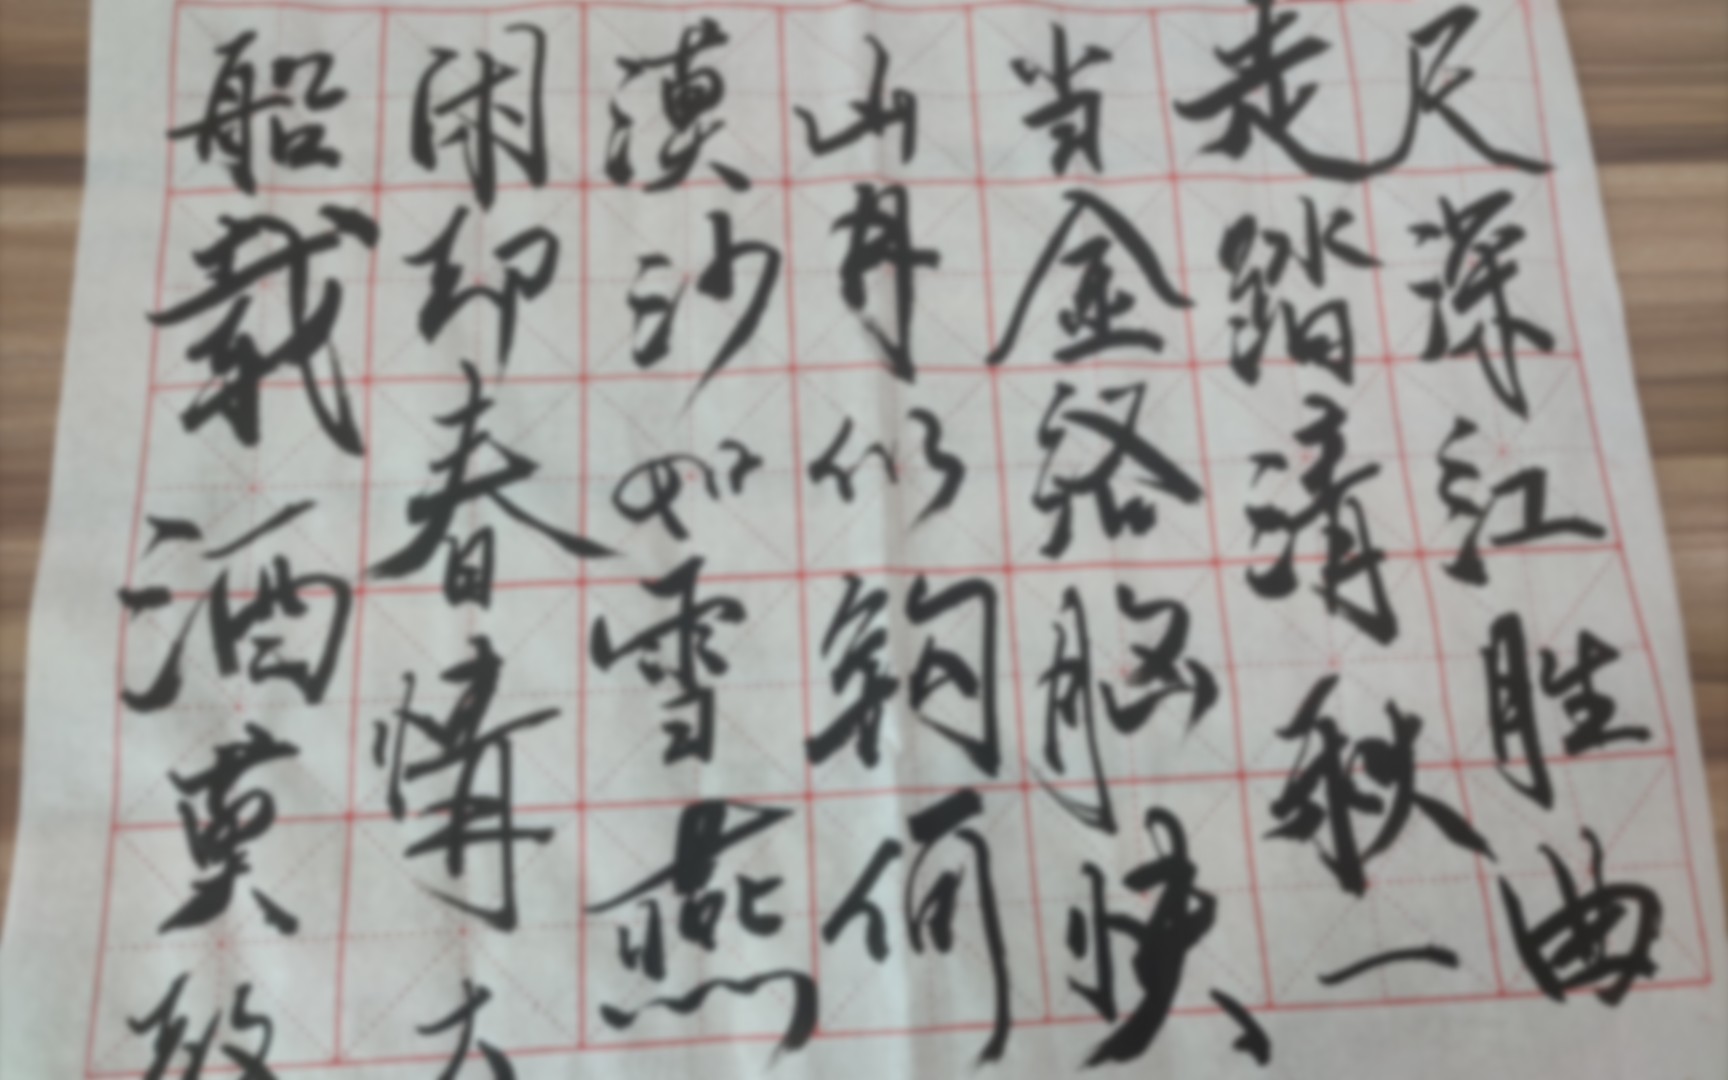 船载酒莫教
闲却春情大
漠沙如雪燕
山月似钩何
当金络脑快
走踏清秋一
尺深红胜曲